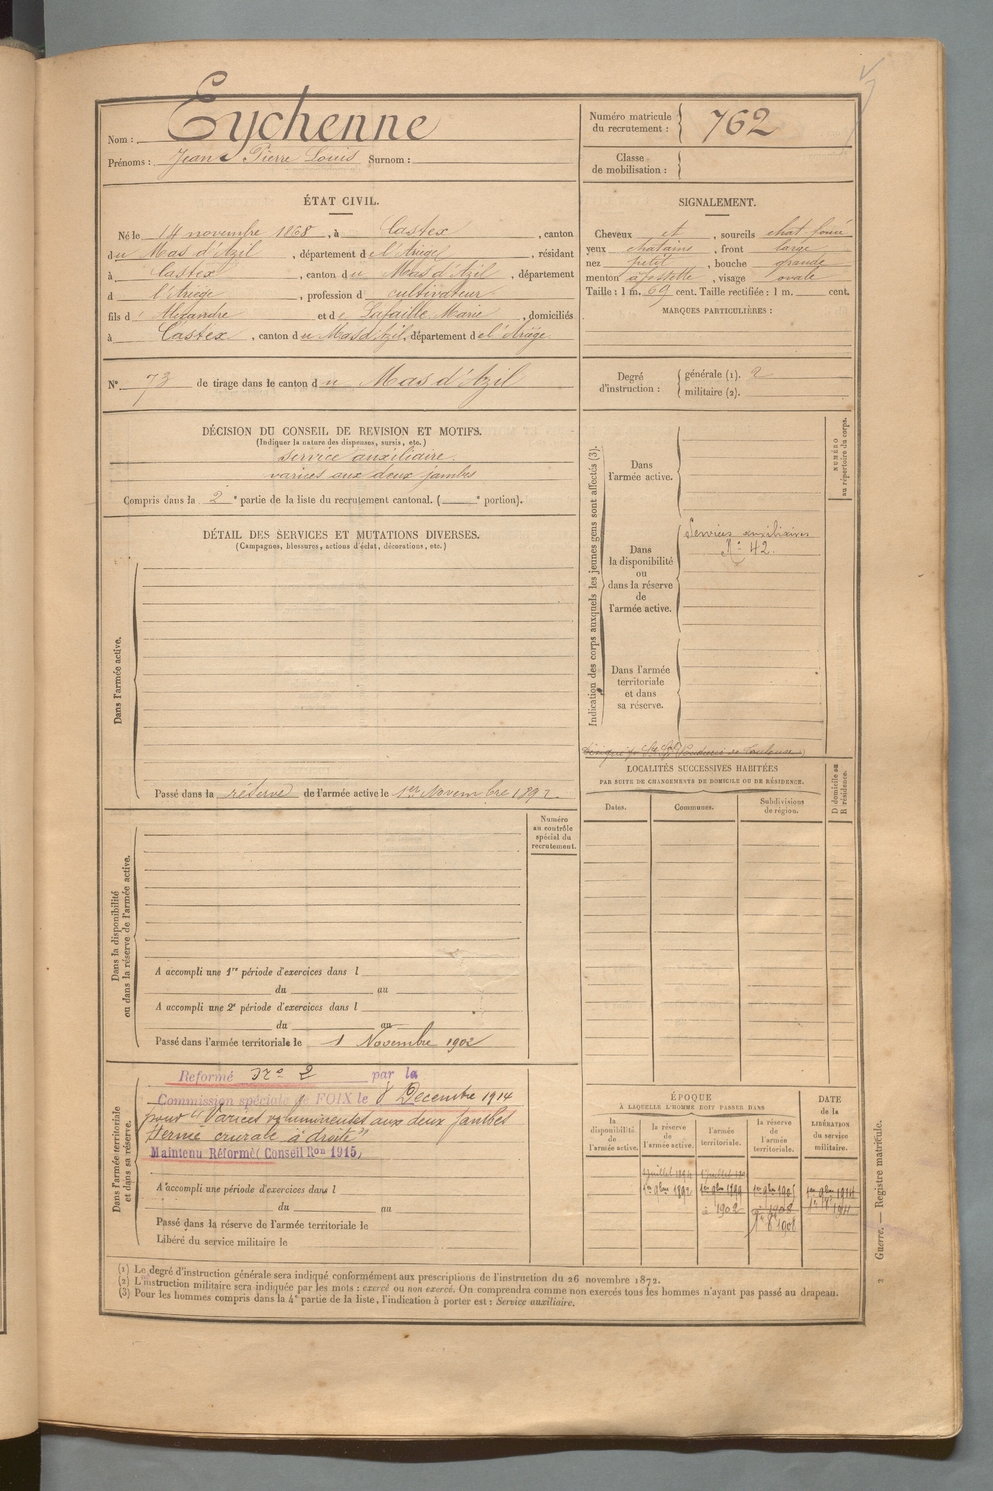 Nom : Eychenne
Prénoms : Jean Pierre Louis Surnom :
Numéro matricule du recrutement : 762
Classe de mobilisation :
ÉTAT CIVIL.
Né le 14 novembre 1868, à Castex, canton
du Mas d'Azil, département de l'Ariège, résidant
à Castex, canton du Mas d'Azil, département
d l'Ariège, profession d cultivateur
fils d' Alexandre et de Lafaille Marie, domiciliés
à Castex, canton du Mas d'Azil, département de l'Ariège
N° 73 de tirage dans le canton du Mas d'Azil
SIGNALEMENT.
Cheveux et, sourcils chat foncé
yeux chatains, front large
nez petit, bouche grande
menton à fossette, visage ovale
Taille : 1 m. 69 cent. Taille rectifiée : 1 m. cent.
MARQUES PARTICULIÈRES :
Degré d'instruction : générale (1). 2
militaire (2).
DÉCISION DU CONSEIL DE REVISION ET MOTIFS.
(Indiquer la nature des dispenses, sursis, etc.)
service auxiliaire.
varices aux deux jambes
Compris dans la 2e partie de la liste du recrutement cantonal. ( e portion).
DÉTAIL DES SERVICES ET MUTATIONS DIVERSES.
(Campagnes, blessures, actions d'éclat, décorations, etc.)
Dans l'armée active.
Passé dans la réserve de l'armée active le 1er Novembre 1892
Indication des corps auxquels les jeunes gens sont affectés (3).
NUMÉRO au répertoire du corps.
Dans l'armée active.
Dans la disponibilité ou dans la réserve de l'armée active.
Services auxiliaires
N° 42.
Dans l'armée territoriale et dans sa réserve.
LOCALITÉS SUCCESSIVES HABITÉES
PAR SUITE DE CHANGEMENTS DE DOMICILE OU DE RÉSIDENCE.
Dates. Communes. Subdivisions de région. D domicile ou R résidence.
Numéro au contrôle spécial du recrutement.
Dans la disponibilité ou dans la réserve de l'armée active.
A accompli une 1re période d'exercices dans l
du au
A accompli une 2e période d'exercices dans l
du au
Passé dans l'armée territoriale le 1 Novembre 1902
Dans l'armée territoriale et dans sa réserve.
Reformé No 2 par la
Commission spéciale de FOIX le 8 Décembre 1914
pour "Varices volumineuses aux deux jambes
Hernie crurale à droite"
Maintenu Réformé Conseil Ron 1915,
A accompli une période d'exercices dans l
du au
Passé dans la réserve de l'armée territoriale le
Libéré du service militaire le
ÉPOQUE
À LAQUELLE L'HOMME DOIT PASSER DANS
la disponibilité de l'armée active.
la réserve de l'armée active.
l'armée territoriale.
la réserve de l'armée territoriale.
DATE de la LIBÉRATION du service militaire.
1er 9bre 1892
1902
Guerre. — Registre matricule.
(1) Le degré d'instruction générale sera indiqué conformément aux prescriptions de l'instruction du 26 novembre 1872.
(2) L'instruction militaire sera indiquée par les mots : exercé ou non exercé. On comprendra comme non exercés tous les hommes n'ayant pas passé au drapeau.
(3) Pour les hommes compris dans la 4e partie de la liste, l'indication à porter est : Service auxiliaire.